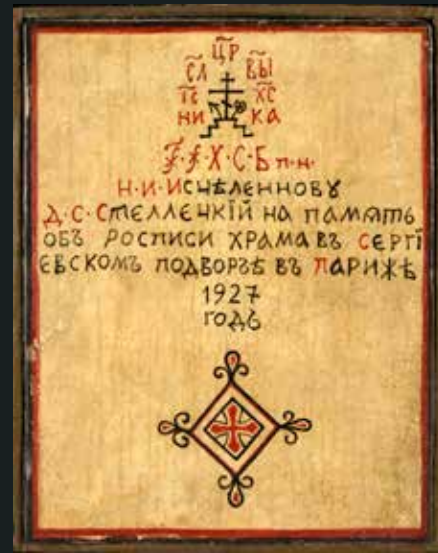 Ц҃Р
С҃Л В҃Ы
І҃С Х҃С
НИ КА
Х·С·Б п·н·
Н·И·ИСЦѢЛЕННОВУ
Д·С·СТЕЛЛЕЦКІЙ НА ПАМЯТЬ
ОБЪ РОСПИСИ ХРАМА ВЪ СЕРГІ
ЕВСКОМЪ ПОДВОРЬѢ ВЪ ПАРИЖѢ
1927
ГОДЪ